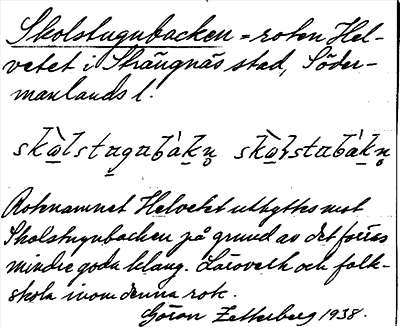 Skolstugubacken = roten Hel-
vetet i Strängnäs stad, Söder-
manlands l.
skὼlstugubákn̥ skὼlstubákn̥
Rotenamnet Helvetet utbyttes mot
Skolstugubacken på grund av det förras
mindre goda klang. Läroverk och folk-
skola inom denna rote.
Göran Zetterberg 1938.